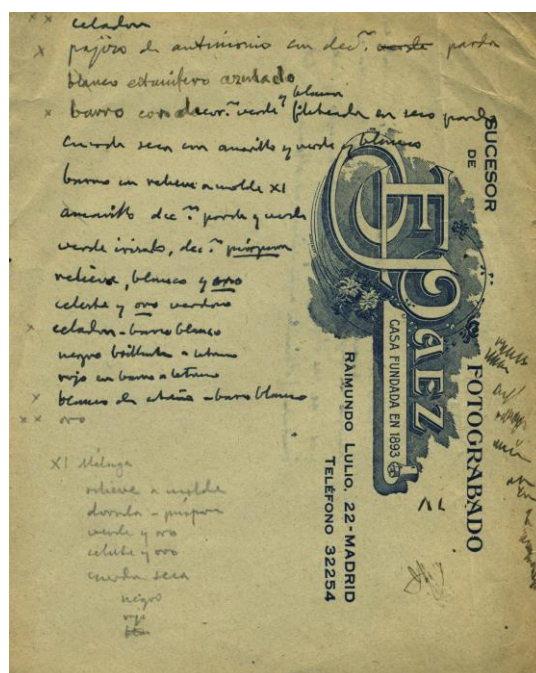 celadon
pajizo de antimonio con decn. verde parda
blanco estannifero azulado
barro con decorn. verde y blanco fileteada en seco parda
cuerda seca con amarillo y verde y blanco
barro con relieve a molde XI
amarillo decn. parda y verde
verde irisado, decn. púrpura
relieve, blanco y oro
celeste y oro verdoso
celadon - barro blanco
negro brillante
rojo en barro
blanco de - barro blanco
oro
XI Málaga
relieve a molde
dorada - púrpura
verde y oro
celeste y oro
cuerda seca
negro
rojo
SUCESOR
DE
E. PAEZ
CASA FUNDADA EN 1893
FOTOGRABADO
RAIMUNDO LULIO, 22 - MADRID
TELÉFONO 32254